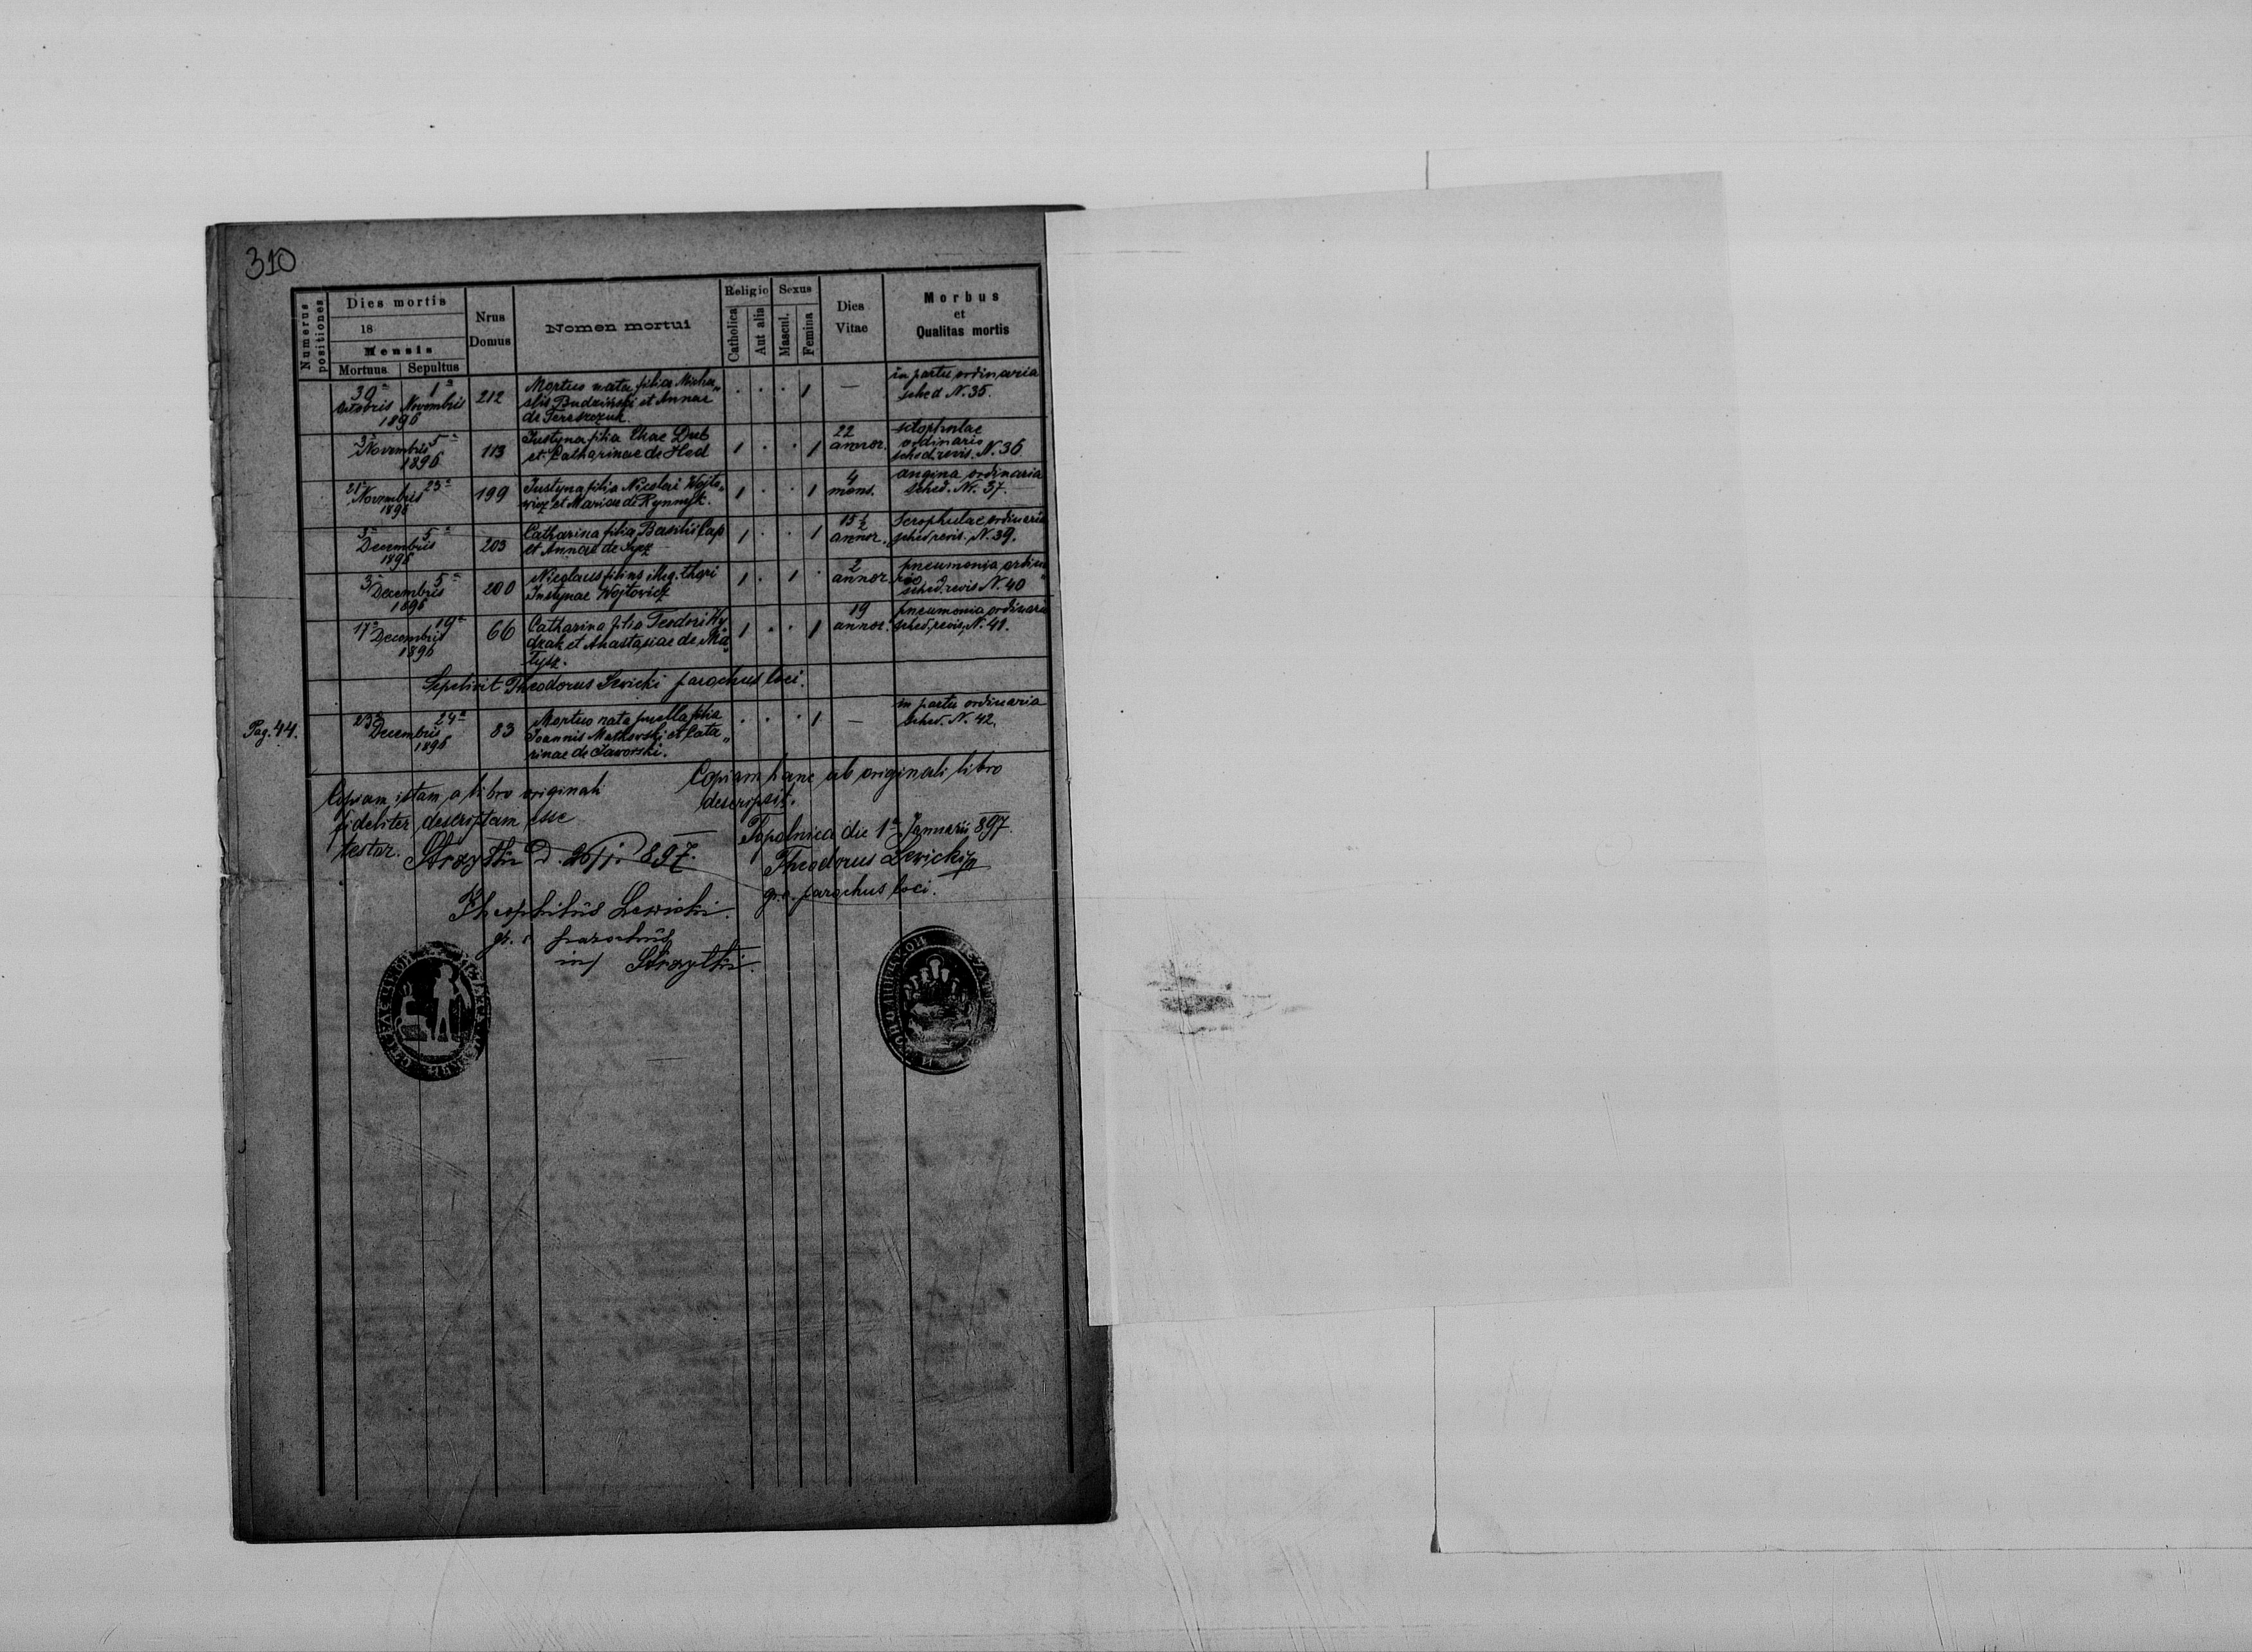 310
Numerus positiones
Dies mortis
18
Mensis
Mortuus Sepultus
Nrus Domus
Nomen mortui
Religio
Catholica
Aut alia
Sexus
Mascul.
Femina
Dies Vitae
Morbus
et
Qualitas mortis
30a 1a 212 Mortuo nata filia Micha„ . . . 1 — in partu ordinaria
Octobris Novembris aelis Budziński et Annae sched N. 35.
1896 de Tereszczuk
3a 5a 113 Justyna filia Eliae Dub 1 . . 1 22
Novembris et Catharinae de Hod annor. ordinaria
1896 sched. revis. N. 36
21a 23a 199 Justyna filia Nicolai Wojto„ 1 . . 1 4 angina ordinaria
Novembris wicz et Mariae de Rynnyk. mens. sched. Nr. 37.
1896
3a 5a 203 Catharina filia Basilii Cap 1 . . 1 15½ Scrophulae ordinaria
Decembris et Annae de annor. sched revis. N. 39.
1896
3a 5a 200 Nicolaus filius illeg. thori 1 . 1 . 2 pneumonia ordina„
Decembris Justynae Wojtowicz annor ria
1896 sched. revis N. 40
17a 19a 66 Catharina filia Teodori Hy 1 . . 1 19 pneumonia ordinaria
Decembris dzak et Anastasiae de Ma„ annor. sched. revis. N. 41.
1896 tysz.
Sepelivit Theodorus Lewicki parochus loci.
Pag. 44. 23a 24a 83 Mortuo nata puella filia . . . 1 — in partu ordinaria
Decembris Joannis Matkovski et Cata„ sched. N. 42.
1896 rinae de Jaworski.
Copiam istam a libro originali
fideliter descriptam esse
testor. d. 897.
Theophilus Lewicki.
gr. c. parochus
in
Copiam hanc ab originali libro
descripsit.
Topolnica die 1a Januarii 897.
Theodorus Lewicki
g. c. parochus loci.